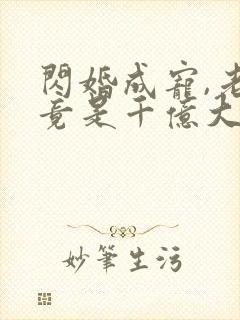 閃婚成寵,老
竟是千億大
妙筆生污